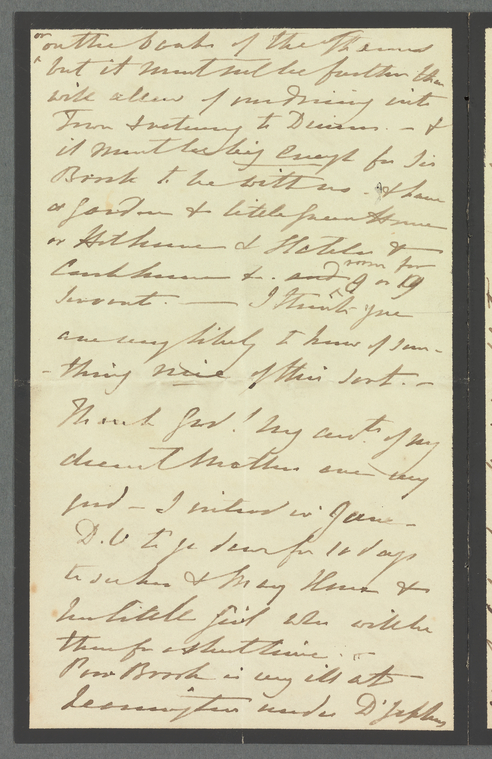 or
on the banks of the Thames
but it must not be further than
will allow of our driving into
Town & returning to Dinner. — &
it must be big enough for Sir
Brook to be with us — & have
a garden & little Green House
or Hothouse & Stables &
Coachhouse &c. and room for 9 or 10
Servants. — I think you
are very likely to know of some-
-thing nice of this sort. —
Thank God! My accts of my
dearest Mother are very
good — I intend in June —
D.V. to go down for 10 days
to see her & Mary Anne &
her little girl who will be
there for a short time. —
Poor Brook is very ill at
Leamington under Dr Jephson